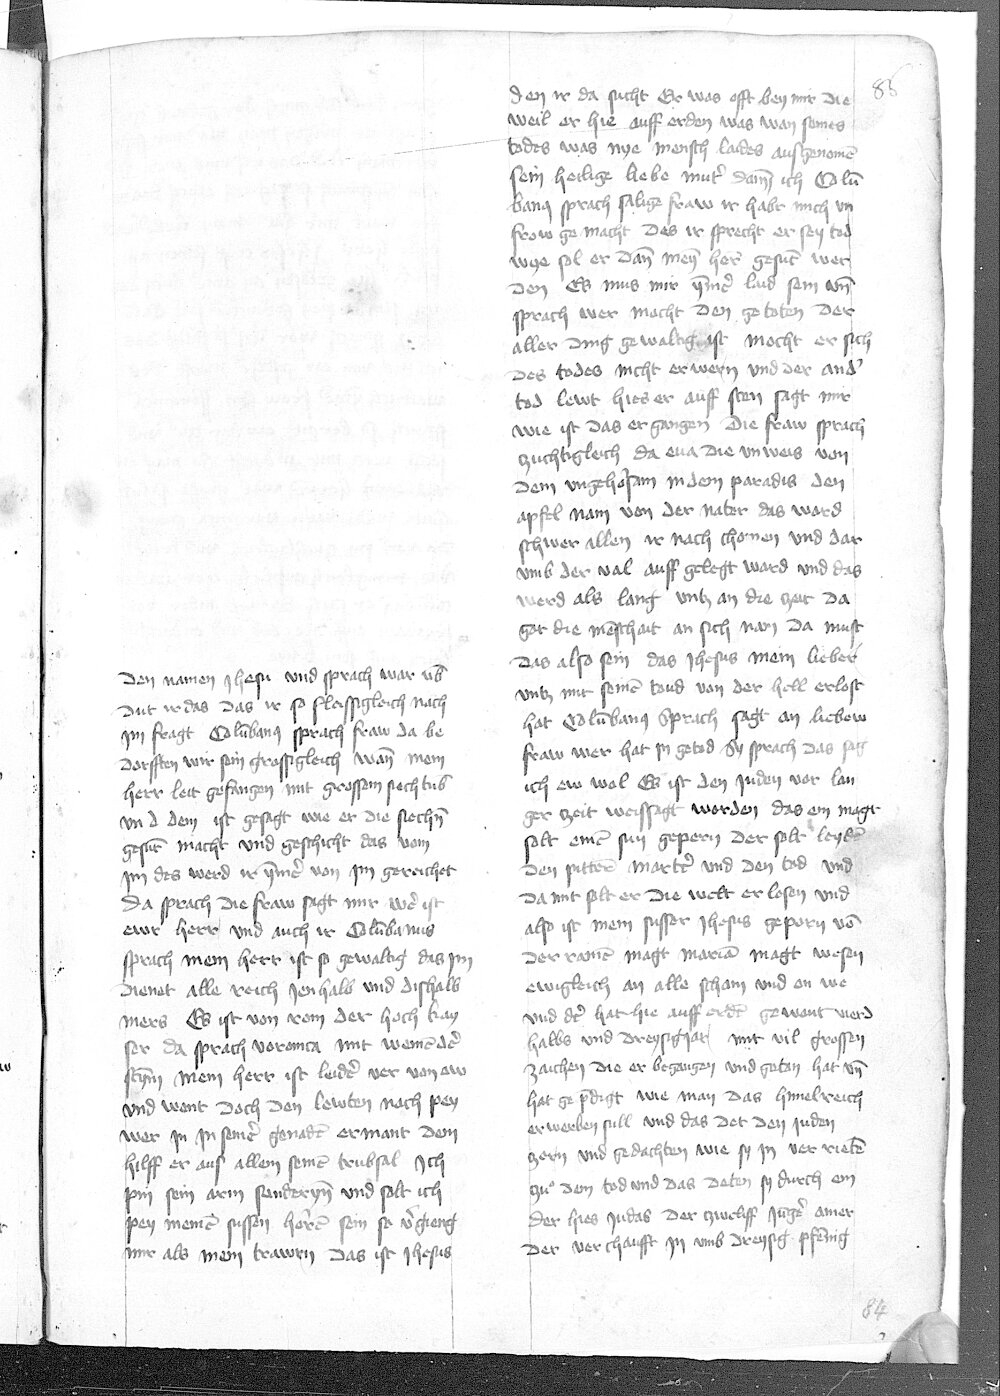 den namen Jhesu vnd sprach war vb̄
dut ir das das ir so fleissigleich nach
im fragt Colūbanꝯ sprach fraw da be
dorfften wir sein grossigleich wan̄ mein
herr leit gefangen mit grossem siechtub̄
vnd dem ist gesagt wie er die siechn̄
gesūt macht vnd geschicht das vom
im des werd ir ym̄er von im gereichet
Da sprach die fraw sagt mir wer ist
ewr herr vnd auch ir Colūbanus
sprach mein herr ist so gewaltig das im
dienet alle reich Jenhalb vnd dishalb
mers Es ist von rom der hoch kay
ser da sprach veronica mit weinēder
stym̄ mein herr ist leider ver von ew
vnd wont doch den lewten nach pey
wer in in seiner genadē ermant dem
hilff er aus allem seinē trubsal Ich
pin sein arm sunderyn̄ vnd solt ich
pey meinē sussen herrē sein so v̄gieng
mir als mein trawrn das ist Jhesus
85
den ir da sucht Er was offt bey mir die
weil er hie auff erden was wan seines
todes was nye mensch laides ausgenomē
sein heilige liebe muter dann ich Colū
banꝯ sprach salige fraw ir habt mich vn
frow gemacht des ir sprecht er sey tod
wye sol er dan̄ mein̄ herr̄ gesūt wer
den Es mus mir ym̄er laid sein vn̄
sprach wer macht den getoten der
aller ding gewaltig ist mocht er sich
des todes nicht erwern vnd der ander
tod lewt hies er auff sten sagt mir
wie ist das ergangen Die fraw sprach
zuchtigleich da eua die vnweis von
dem vngehorsam in dem paradis den
apfel nam von der nater das ward
schwer allen ir nach chomen vnd dar
vmb der val auff gelegt ward vnd das
werd als lang vntz an die zeit da
got die mēschait an sich nam da must
das also sein das Jhesus mein lieber
vntz mit seinē toud von der hell erlost
hat Colūbanꝯ sprach sagt an liebew
fraw wer hat in getod Sy sprach das sag
ich ew wol Es ist den Juden vor lan
ger zeit weissagt worden das ein magt
solt einē sun gepern der solt leydē
den pittern̄ marter vnd den tod vnd
da mit solt er die welt erlosen vnd
also ist mein susser Jhesus geporn vō
der rainē magt mariā magt wesen
ewigleich an alle scham vnd on we
vnd der hat hie auff erdē gewont vierd
halbs vnd dreysig Jar mit vil grossen
zaichen die er begangen vnd getan hat vn̄
hat gepredigt wie man das himelreich
erwerben sull vnd das det den Juden
zern vnd gedachten wie sy in verrietē
zu dem tod vnd das deten sy durch ein
der hies Judas der zwelff Junger ainer
der verchaufft in vmb dreysig pfennig
84